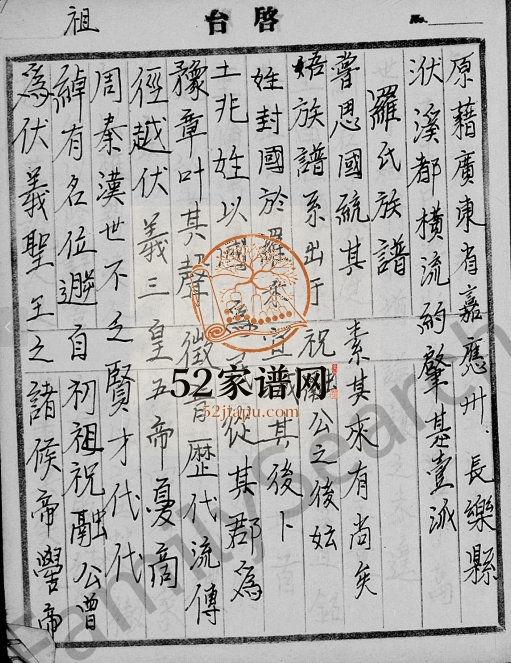 祖
啓台
No.
原藉廣東省嘉應州長樂縣
洑溪都橫流約肇基壹派
羅氏族譜
嘗思國統其 素其來有尚矣
姓族譜系出于祝融公之後妘
姓封國於羅 其後卜
土兆姓以國為 從其郡為
豫章叶其聲徵音歷代流傳
徑越伏義三皇五帝夏商
周秦漢世不乏賢才代代
綽有名位遡自初祖祝融公曾
為伏義聖王之諸候帝嚳帝
52家谱网
52jiapu.com
FamilySearch